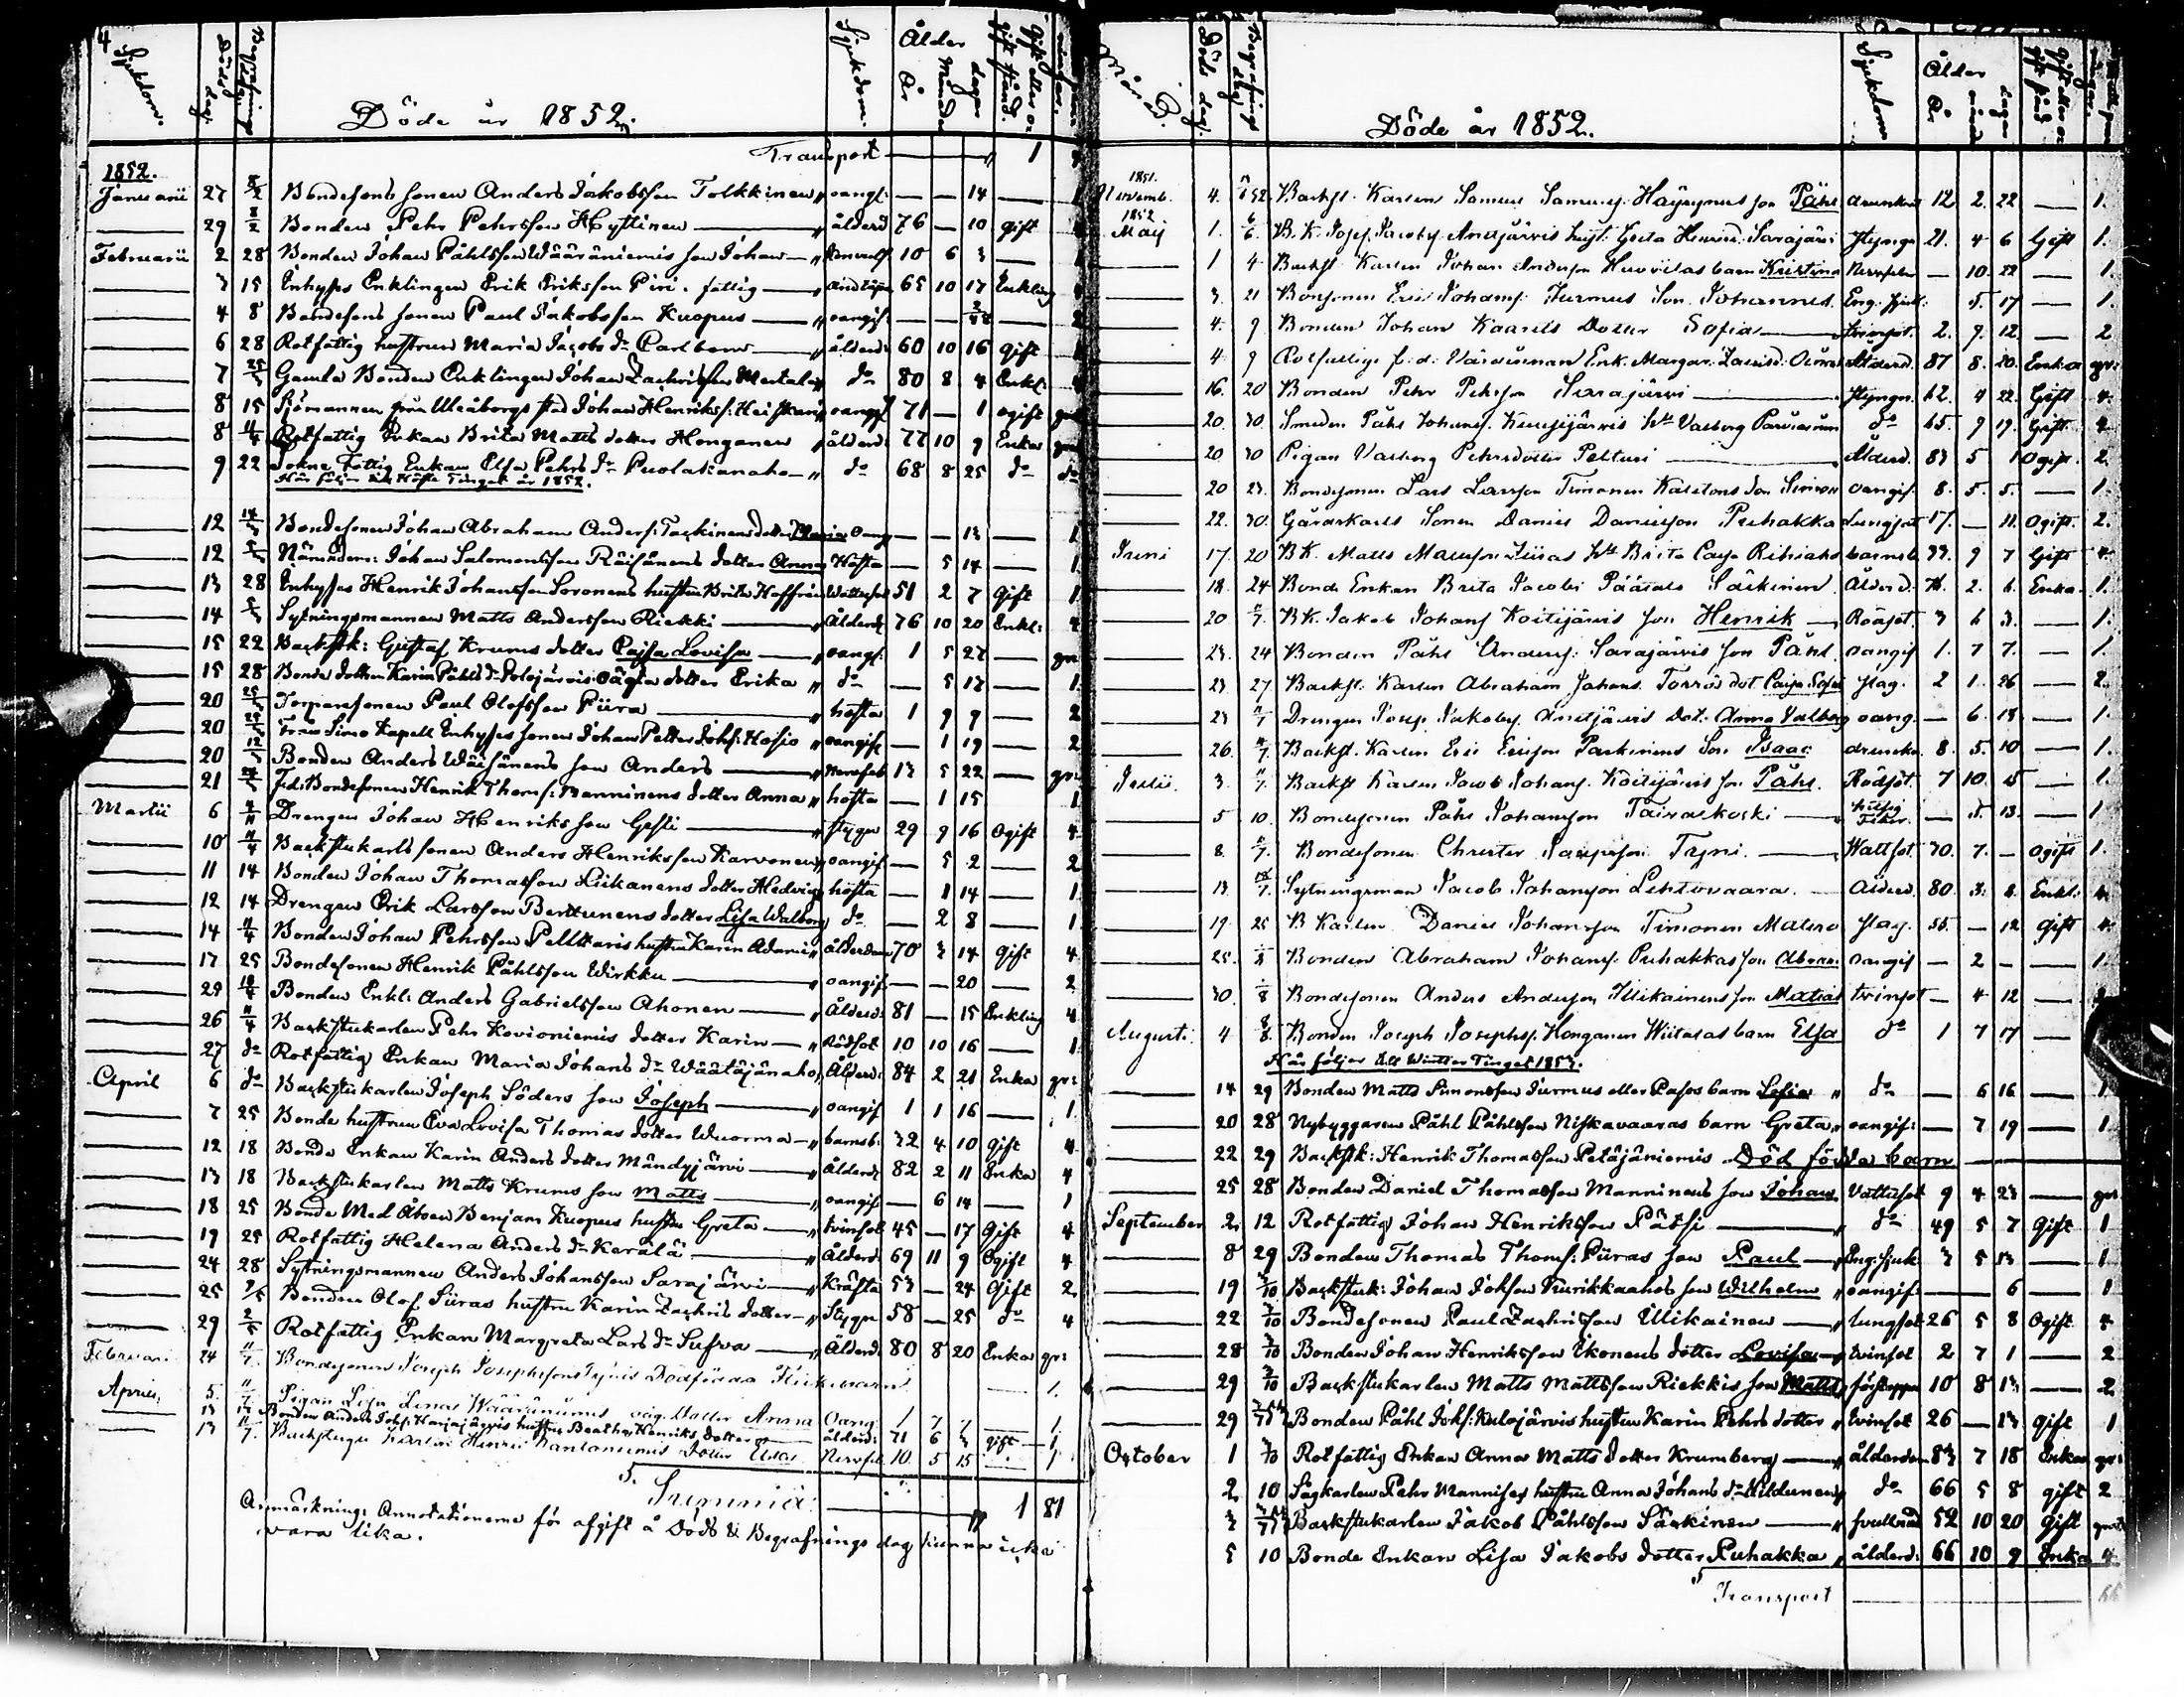 4
Sjukdom.
Döds dag.
Begrafnings dag.
Döde år 1852.
Sjukdom.
Ålder
År
Månader
dagar
Gift eller ogift stånd.
Transport — " 1
1852.
Januarii 27 Bondesons sonen Anders Jakobsson Tolkkinen " oangf: — — 14 — 1
— 29 8/2 Bonden Pehr Pehrsson Hyttinen — " ålderd 76 — 10 gift
Februarii 2 28 Bonden Johan Påhlsson Wääräniemis son Johan — " 10 6 3 —
— 3 15 Inhyses Enklingen Erik Eriksson Piri. fattig — " 65 10 17 Enkling
— 4 8 Bondesons sonen Paul Jakobsson Kuopus — " oangif: — — —
— 6 28 Rotfattig hustrun Maria Jacobs dr Carlbom — " ålderd: 60 10 16 gift
— 7 Gamla Bonden Enklingen Johan Zachrisson Mertala " do 80 8 4 Enkl:
— 8 15 Sjömannen från Uleåborgs stad Johan Henrikss: Heiskari " oangif 71 — 1 ogift
— 8 11/4 Rotfattig Enkan Brita Matts dotter Honganen " ålderd: 77 10 9 Enka
— 9 22 Sokne Fattig Enkan Elsa Pehrs dr Puolakanaho — " do 68 8 25 do do
Här följer till Höste Tinget år 1852.
— 12 14/3 Bondesonen Johan Abraham Anderss: Taskinen dotter Maria Oang — — 13 — 1
— 12 Nämndem: Johan Salomonsson Räisänens dotter Anna Hosta — 5 14 — 1
— 13 28 Inhyses Henrik Johansson Soronens hustru Brita Hoffrén Wattusot 51 2 7 Gift 1
— 14 Sytningsmannen Matts Andersson Riekki — " Ålderd 76 10 20 Enkl: 4
— 15 22 Backstk: Gustaf Krums dotter Cajsa Lovisa — " oangf: 1 5 27 — gr:
— 15 28 Bonde dottren Karin Påhls dr Polojärvis oägta dotter Erika " do — 5 17 — 1
— 20 Torparesonen Paul Olofsson Piira — " hosta 1 9 9 — 2
— 20 Från Simo Kapell Inhyses sonen Johan Petter Johss: Hosio " oangif — 1 19 — 2
— 20 12/3 Bonden Anders Wäisänens son Anders — " Nervfeb 13 5 22 — gr:
— 21 f.d: Bondesonen Henrik Thomss: Manninens dotter Anna " hosta — 1 15 1
Martii 6 4/4 Drengen Johan Henriksson Gesti — " stygn 29 9 16 Ogift 4
— 10 11/4 Backstukarls sonen Anders Henriksson Karvonen " oangif — 5 2 — 2
— 11 14 Bonden Johan Thomasson Liikanens dotter Hedvig " hosta — 1 14 — 1
— 12 14 Drengen Erik Larsson Berttunens dotter Lisa Walborg do — 2 8 — 1
— 14 11/4 Bonden Johan Pehrsson Pellikkaris hustru Karin Adami " ålderdom 70 3 14 Gift 4
— 17 25 Bondesonen Henrik Påhlsson Wirkku — " oangif: — — 20 — 2
— 29 18/4 Bonden Enkl: Anders Gabrielsson Ahonen — " Ålderd: 81 — 15 Enkling 4
— 26 11/4 Backstukarlen Pehr Kovioniemis dotter Karin — " rödsot 10 10 16 — 1
— 27 do Rotfattig Enkan Maria Johans dr Wäätäjänaho, Ålderd: 84 2 21 Enka gr:
April 6 do Backstukarlen Joseph Söders son Joseph — " oangif 1 1 16 — 1
— 7 25 Bonde hustrun Eva Lovisa Thomas dotter Wuorma — " barnsb: 32 4 10 Gift 4
— 12 18 Bonde Enkan Karin Anders dotter Mändyjärvi — " Ålderd 82 2 11 Enka 4
— 13 18 Backstukarlen Matts Krums son Matts — " oangif — 6 14 — 1
— 18 25 Bonde Med Åboen Benjam Kuopus hustru Greta — " tvinsot 45 — 17 Gift 4
— 19 25 Rotfattig Helena Anders dr Kerälä — " Ålderd 69 11 9 Ogift 4
— 24 28 Sytningsmannen Anders Johansson Sarajärvi — " Kräfta 53 — 24 Gift 2
— 25 2/5 Bonden Olof Siiras hustru Karin Zachris dotter — " Stygn 58 — 25 do 4
— 29 2/5 Rotfattig Enkan Margreta Lars dr Sufva — " Ålderd 80 8 20 Enka gr:
Februari 24 11/7 Bondesonen Joseph Josephssons Tynis Dödfödda Flickebarn — 1.
April 5. 11/7 Pigan Lisa Linas Wääränienis oäg. dotter Anna Oang 1 7 — 1
— 13 Bonden Anders Johs: Harjajärvis hustru Beatha Henriks dotter — ålderd: 71 6 gift 1
— 13 11/7 Backstugu Karlen Henric Dotter Ulla Nervfeb. 10 5 15 1
Summa: — " 1 81
Anmärkning: Annotationerne för afgift å Döds & Begrafnings dag kunna icke
vara lika.
Månad.
Döds dag.
Begrafnings dag
Döde år 1852.
Sjukdom
Ålder
År
månad
dagar
Gift eller ogift stånd
1851.
Novemb. 4. Backst. Karlens Samuel Samuels. Häyrynens son Påhl drunknat 12 2. 22 — 1.
1852
Maij 1. 6/6. B.K. Josef Jacobss. Anetjärvis hust. Greta Henrisd. Sarajärvi Styngn 21. 4 6 Gift 1.
— 1 4 Backst. Karlen Johan Andersson Huovilas barn Kristina Nervfeber — 10. 22 — 1.
— 3. 21 Bonsonen Eric Johanss. Jurmus Son Johannes. Eng. sjuk: 5. 17 — 1.
— 4. 9 Bonden Johan Kaarels Dotter Sofia — tvinsot. 2. 9. 12. — 2
— 4 9 Rotfattige f.d. Enk. Margar. Zacrisd. Ålderd. 87 8. 20. Enka gr:
— 16. 20 Bonden Pehr Pehrsson Sarajärvi — Styngn. 62. 4 22. Gift 4.
— 20. 30. Smeden Påhl Johanss. Kurjijärvis Hu Valborg do 65. 9 19. Gift. 4.
— 20 30 Pigan Valborg Pehrsdotter Peltari — Ålderd. 83 5 1 Ogift. 2.
— 20 23. Bondesonen Lars Larsson Timonen Kälktons son Simon oangif. 8. 5. 5. — 1.
— 22. 30. Gårdskarls Sonen Daniel Danielson Puhakka Lungsot 17. — 11. Ogift. 2.
Juni 17. 20 B.K. Matts Matsson Siiras Hu Brita Caisa Rihiaho barnsb 33. 9 7 Gift 4.
— 18. 24 Bonde Enkan Brita Jacobs Päätalo Särkinen Ålderd. 76. 2. 6. Enka. 1.
— 20 11/7. B.K. Jakob Johanss Koitijärvis son Henrik — Rödsot. 3 6 3. — 1.
— 23. 24 Bonden Påhl Anderss. Sarajärvis son Påhl. oangif 1. 7 7. — 1.
— 23 27 Backst. Karlen Abraham Johans. Torrös dot Caisa Sofia slag. 2 1. 26 — 2.
— 23 11/7 Drengen Josep Jakobss. Anetjärvis Dot. Anna Valborg oang. — 6. 18. — 1.
— 26. 11/7. Backst. Karlen Eric Ericson Parkkinens Son Isaac drunkn. 8. 5. 10 — 1.
Julii. 3. 11/7. Backst Karlen Jacob Johanss. Koitijärvis son Påhl. Rödsot. 7 10. 5 — 1.
— 5 10. Bondesonen Påhl Johansson Taivalkoski — — 5. 13. — 1.
— 8. 11/7. Bondesonen Christer Josepsson Tyni. — Wattsot. 30. 7. — ogift 1.
— 13. 18/7. Sytningsman Jacob Johansson Lehtovaara. — Ålderd. 80. 3. 8. Enkl. 4.
— 19. 25 B Karlen Daniel Johansson Timonen Matero slag. 55. — 12 Gift 4.
— 25. 1/8 Bonden Abraham Johanss. Puhakkas son Abrah. oangif — 2 — — 1.
— 30. 1/8 Bondesonen Anders Andersson Illikainens son Matias tvinsot — 4 12 —
Augusti. 4 8/8. Bonden Joseph Josephss. Honganen Wiitalas barn Elsa do 1 7 17 —
Här följer till Wintter Tinget 1853.
— 14 29 Bonden Matts Simonsson Jurmus eller Pasos barn Sofia " do — 6 16 — 1
— 20 28 Nybyggaren Påhl Påhlsson Niskavaaras barn Greta " oangif: — 7 19 — 1
— 22 29 Backstk: Henrik Thomasson Petäjäniemis Död födda barn —
— 25 28 Bonden Daniel Thomasson Manninens son Johan Vattusot 9 4 23 — gr:
September 2 12 Rotfattig Johan Henriksson Pätsi — " do 49 5 7 Gift 1
— 8 29 Bonden Thomas Thomss: Piiras son Paul — " Eng: sjuk 3 5 13 — 1
— 19 3/10 Backstuk: Johan Johsson Kurikkaahos son Wilhelm " oangif: — 6 — 1
— 22 3/10 Bondesonen Paul Zachrisson Illikainen — " lungsot 26 5 8 Ogift 4
— 28 3/10 Bonden Johan Henriksson Ikonens dotter Lovisa — " tvinsot 2 7 1 — 2
— 29 3/10 Backstukarlen Matts Mattsson Riekkis son Matts, förstoppn 10 8 13 — 2
— 29 Bonden Påhl Johss: Kulojärvis hustru Karin Pehrs dotter " tvinsot 26 — 13 gift 1
October 1 3/10 Rotfattig Enkan Anna Matts dotter Krumberg — " ålderdom 83 7 18 Enka gr:
2 10 Sågkarlen Pehr Mannises hustru Anna Johans dr Hildunen " do 66 5 8 gift 2
3 Backstukarlen Jakob Påhlsson Särkinen — " 52 10 20 Gift
5 10 Bonde Enkan Lisa Jakobs dotter Puhakka " ålderd: 66 10 9 Enka 4
Transport